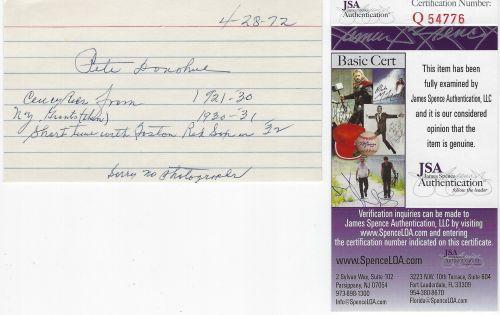 4-28-72
Pete Donohue
from 1921-30
N.Y. Giants 1930-31
Short time with Boston Red Sox in 32
Sorry no photographs
JSA
James Spence
Authentication
Certification Number:
Q 54776
Basic Cert
This item has been
fully examined by
James Spence Authentication, LLC
and it is our considered
opinion that the
item is genuine.
JSA
James Spence
Authentication
follow the leader
Verification inquiries can be made to
James Spence Authentication, LLC by visiting
www.SpenceLOA.com and entering
the certification number indicated on this certificate.
www.SpenceLOA.com
2 Sylvan Way, Suite 102
Parsippany, NJ 07054
973-898-1300
Info@SpenceLOA.com
3223 N.W. 10th Terrace, Suite 604
Fort Lauderdale, FL 33309
954-380-8670
Florida@SpenceLOA.com